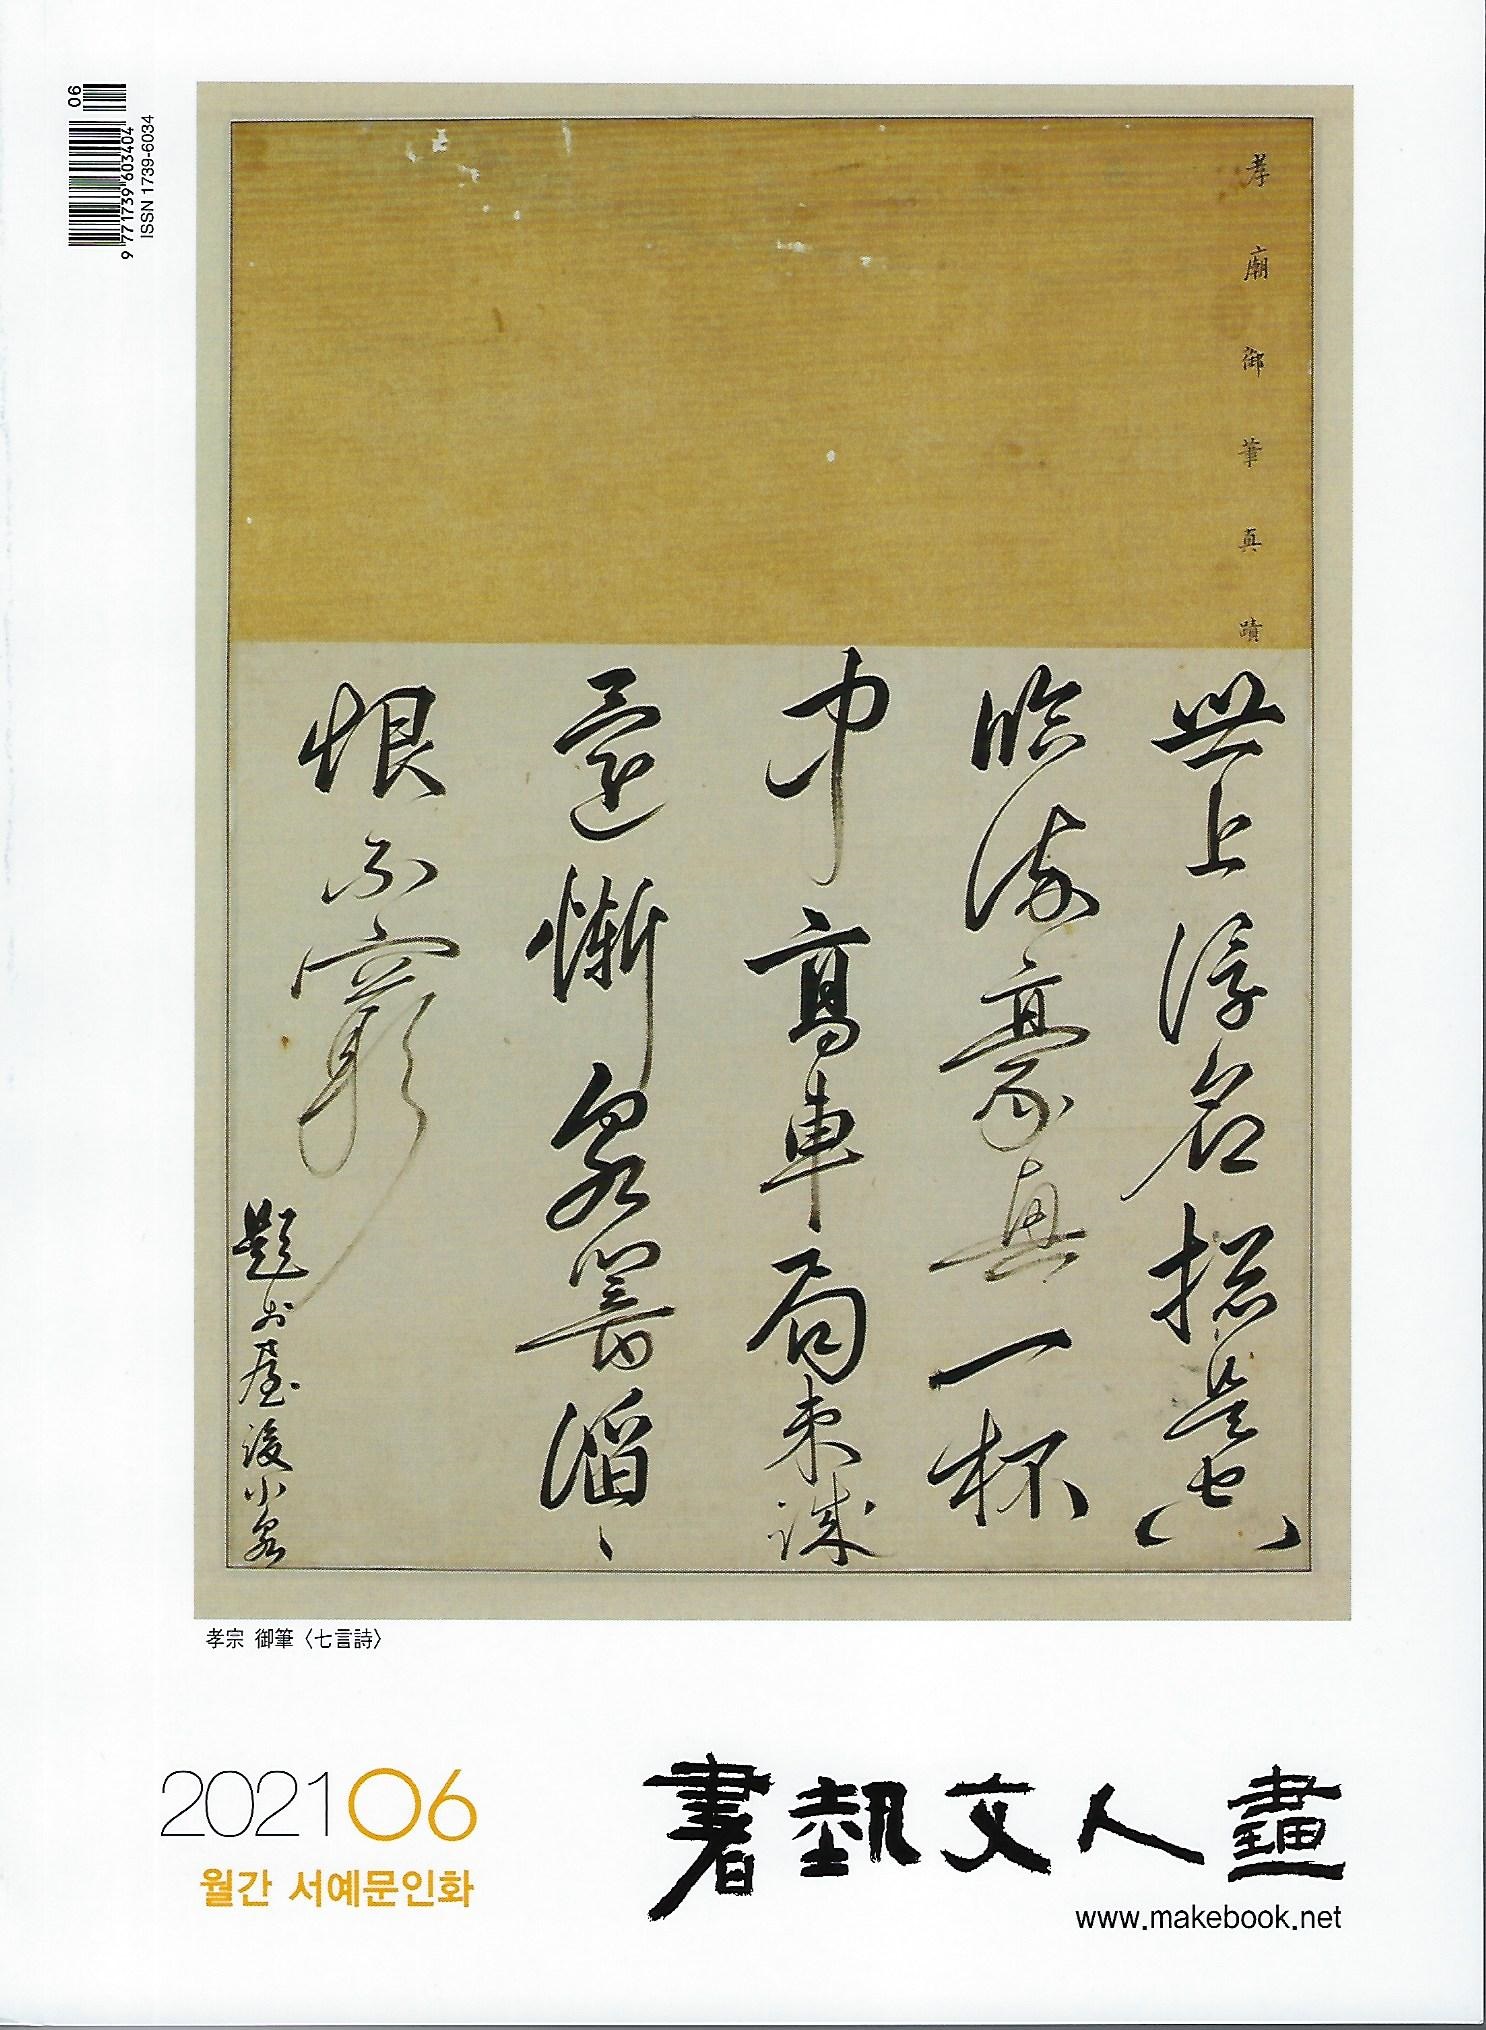 06
9 771739 603404
ISSN 1739-6034
孝廟御筆真蹟
世上浮名摠是空
臨流豪興一杯
中高車局束誠
還慚泉響滔〻
恨不窮
題於屋後小泉
孝宗 御筆〈七言詩〉
202106
월간 서예문인화
書藝文人畵
www.makebook.net